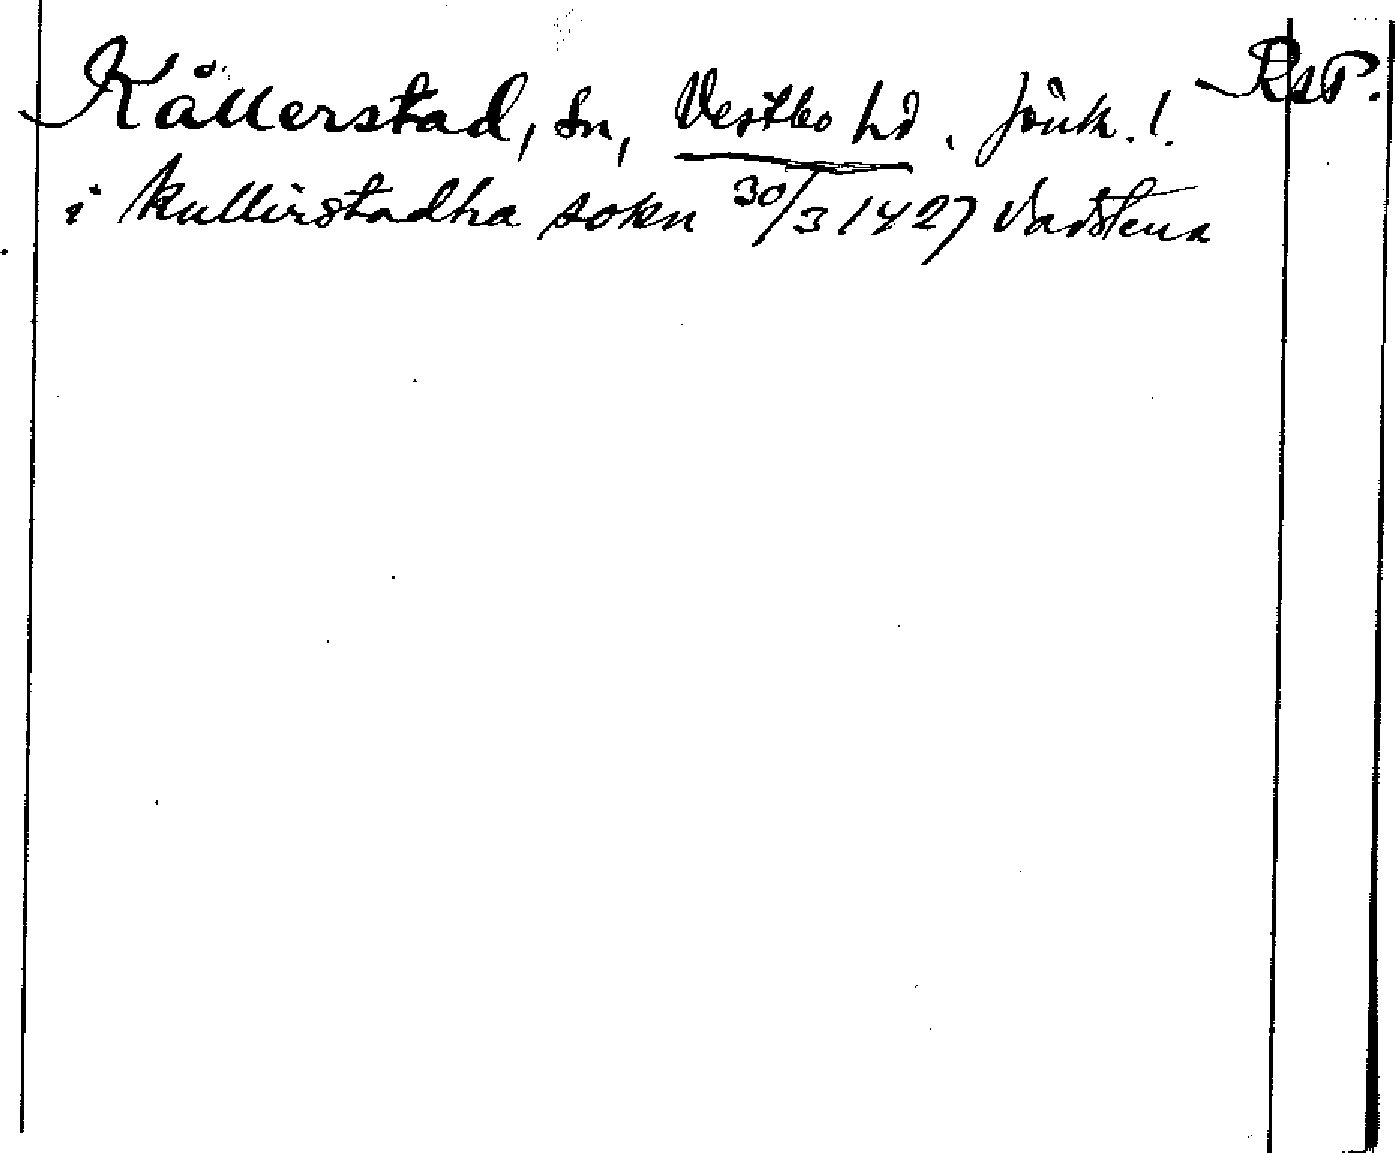 Kållerstad, sn, Vestbo hd. Jönk. l. RAP.
i kullirstadha sokn 30/3 1427 Vadstena